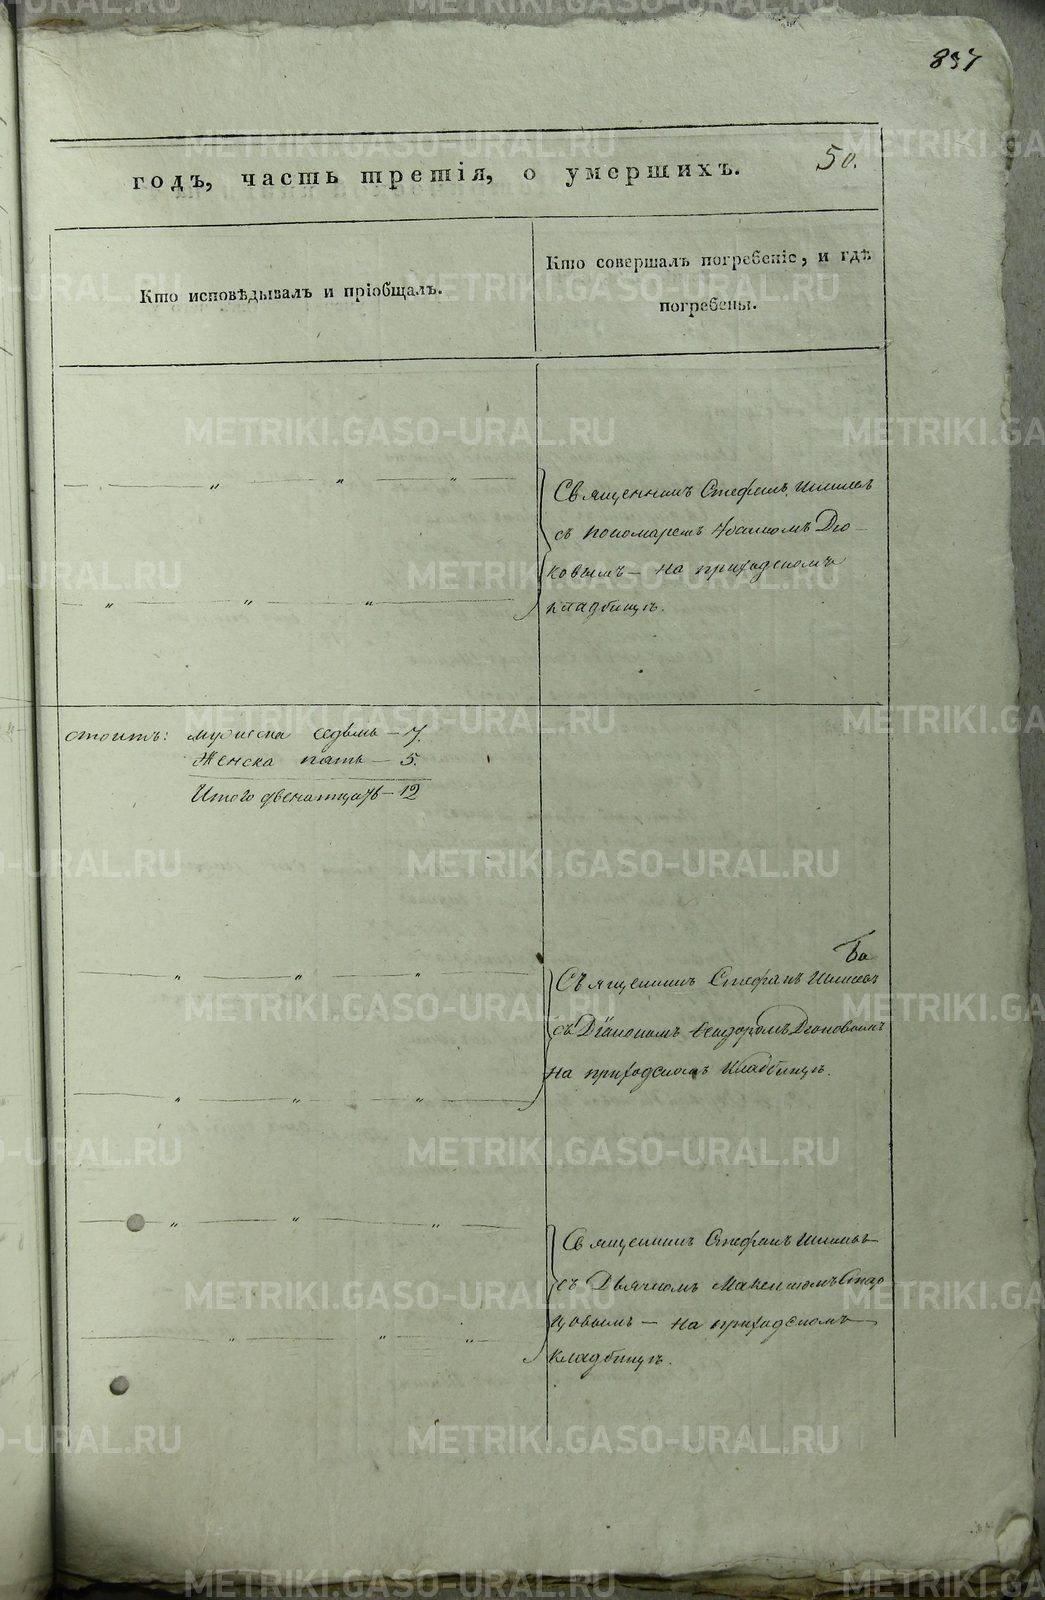 837
50.
годъ, часть третія, о умершихъ.
Кто исповѣдывалъ и пріобщалъ.
Кто совершалъ погребеніе, и гдѣ
погребены.
Священникъ Стефанъ
съ пономаремъ
ковымъ — на приходскомъ
кладбищѣ.
стоитъ: мужеска седмь — 7.
Женска пять — 5.
Итого двенатцать — 12
Священникъ Стефанъ
съ Діакономъ Ѳеодоромъ
на приходскомъ кладбищѣ.
Священникъ Стефанъ
съ Дьячкомъ Максимомъ Стар
цовымъ — на приходскомъ
кладбищѣ.
METRIKI.GASO-URAL.RU